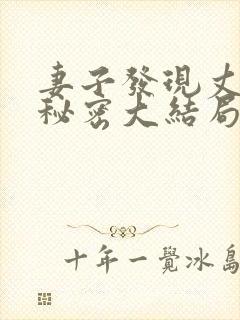 妻子發現丈
秘密大結局
十年一覺冰島